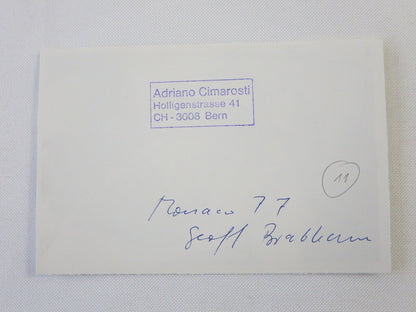 Adriano Cimarosti
Holligenstrasse 41
CH - 3008 Bern
11
Monaco 77
Geoff Brabham